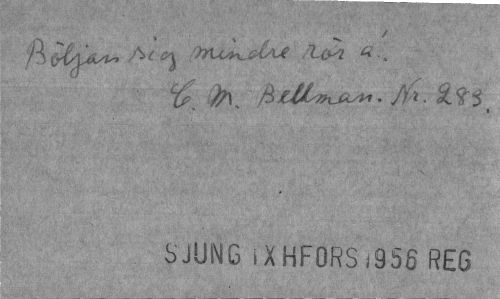 Böljan sig mindre rör å.
C. M. Bellman. Nr. 283.
SJUNG IX HFORS 1956 REG